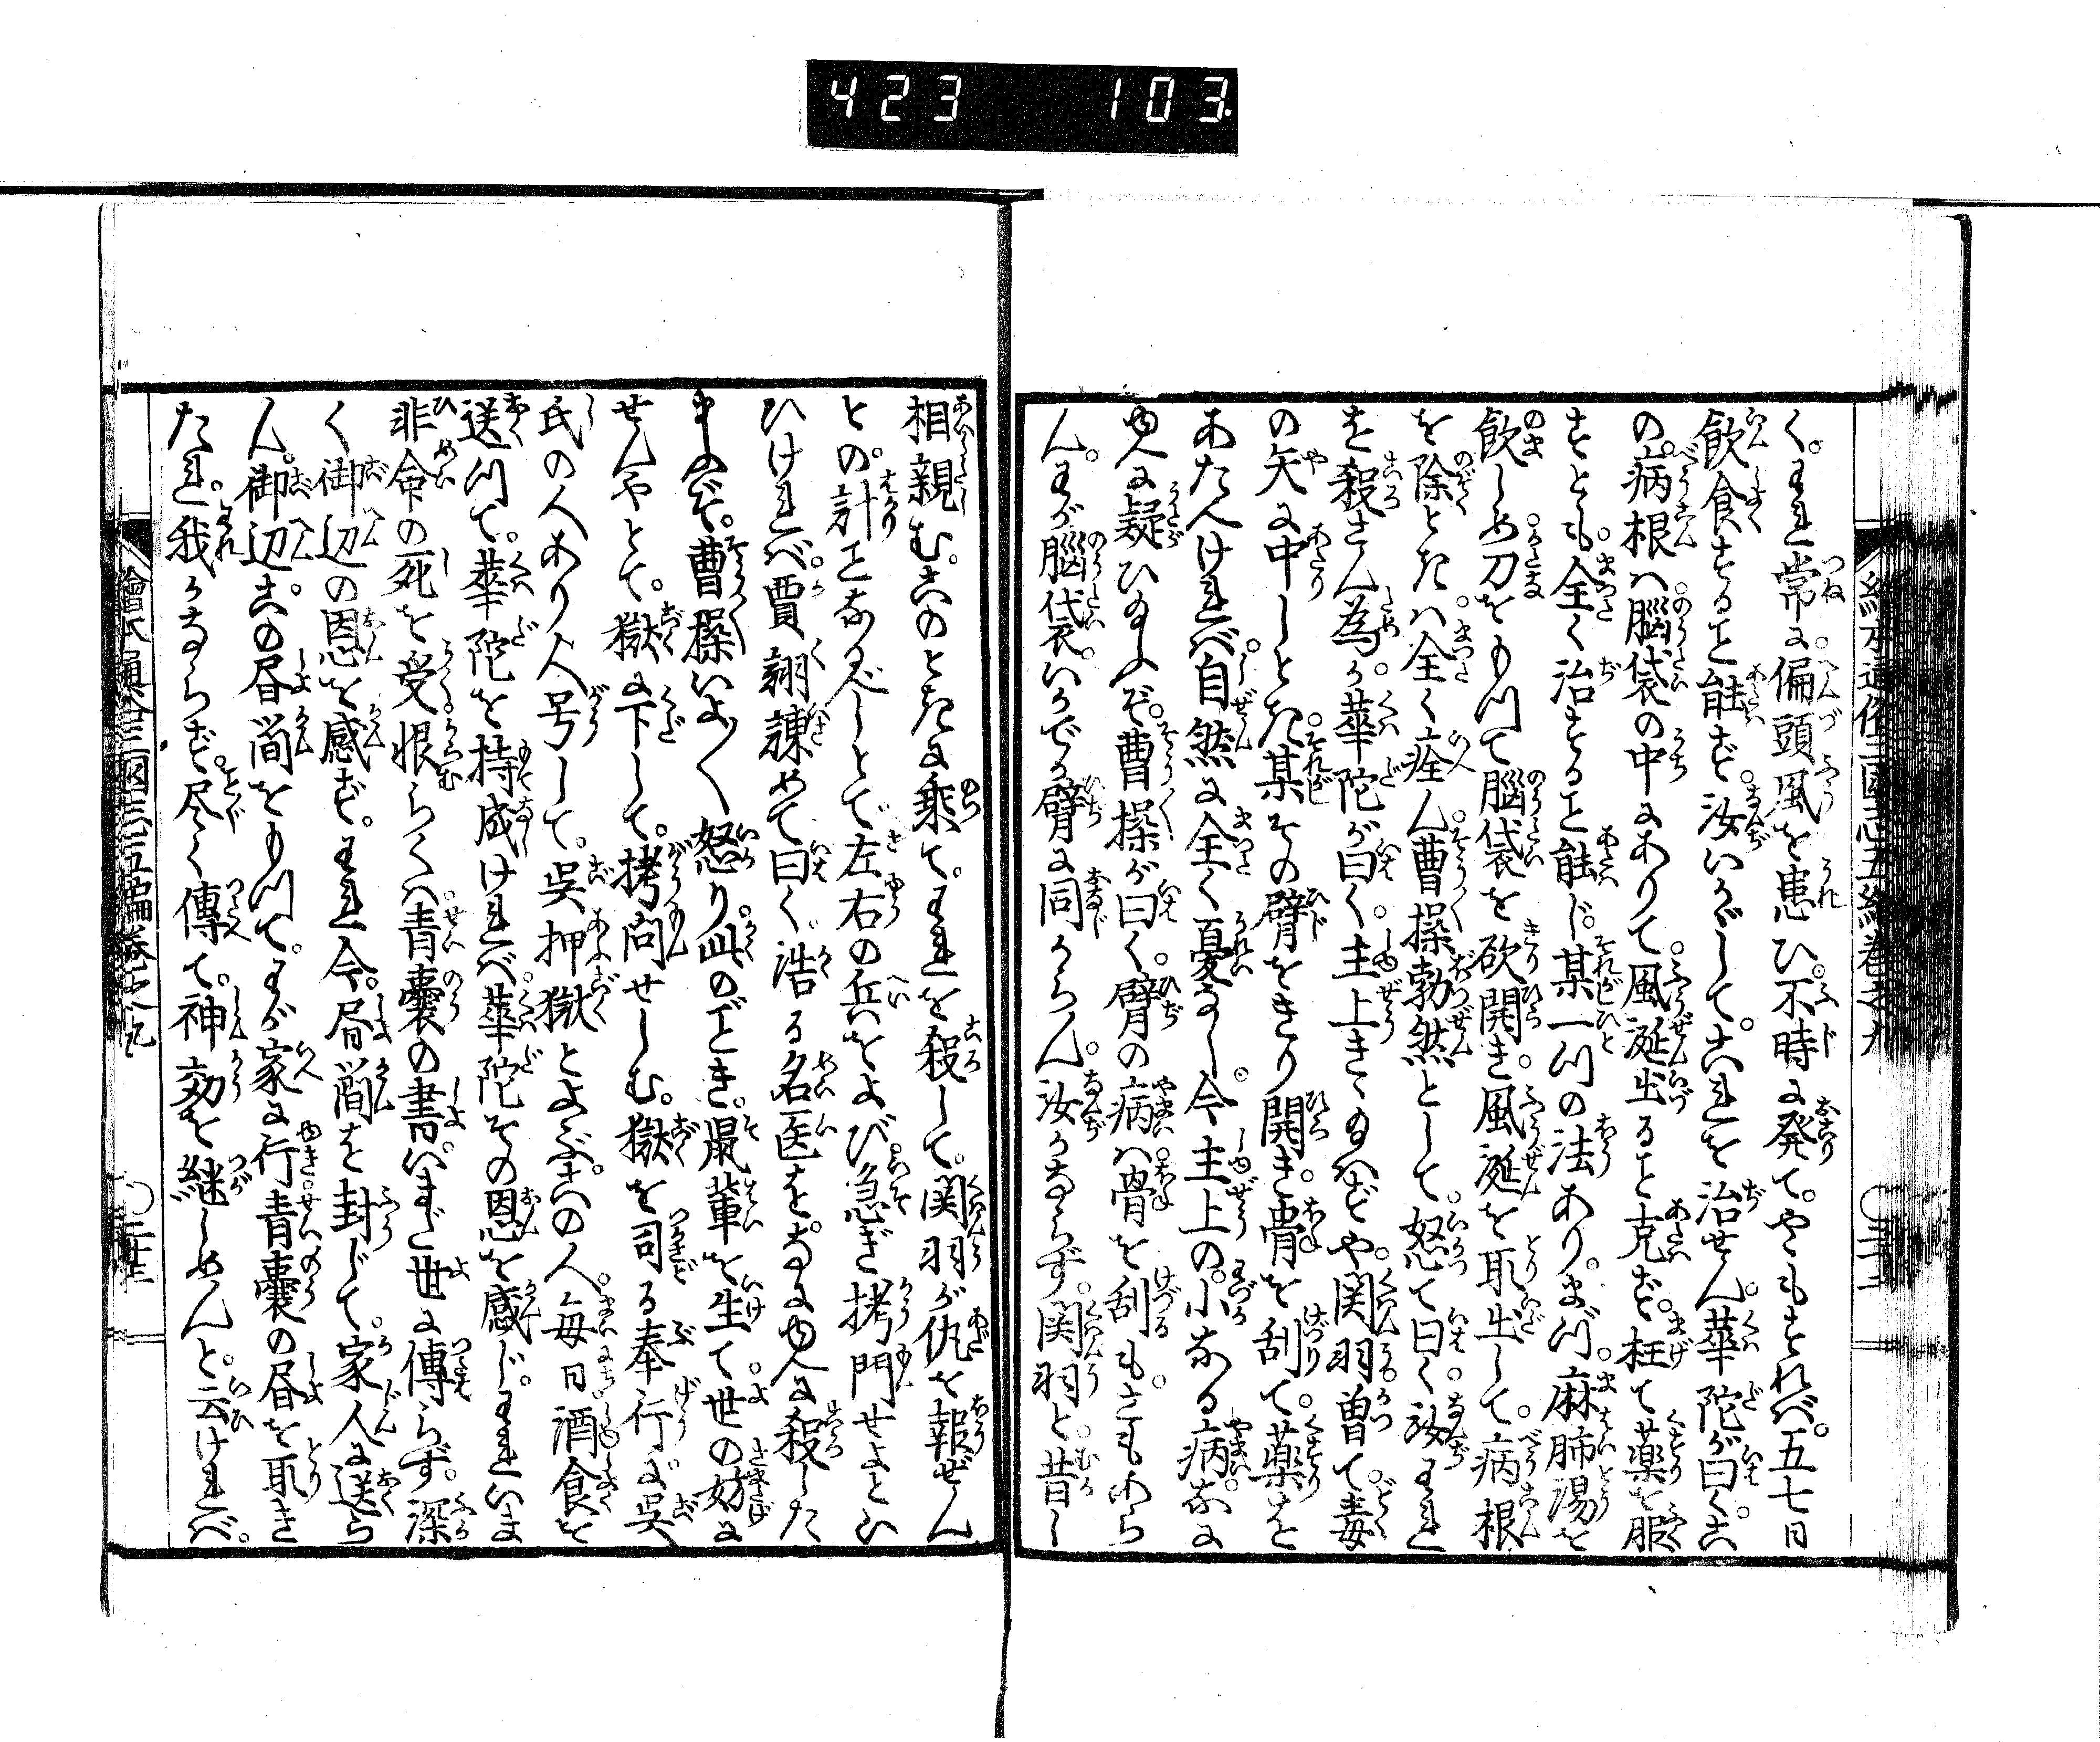 423 103
く。われ常に偏頭風を患ひ。不時に発て。やゝもすれバ。五七日
飲食すること能ず。汝いかゞして。これを治せん。華陀が曰く。こ
の病根ハ脳袋の中にありて。風涎出ること克ず。枉て薬を服
すとも。全く治すること能じ。某一つの法あり。まづ麻肺湯を
飲しめ。刀をもつて脳袋を砍開き。風涎を取出して。病根
を除ときハ。全く痊ん。曹操勃然として。怒て曰く。汝われ
を殺さん為か。華陀が曰く。主上きゝ給ハずや。関羽曽て。毒
の矢に中しとき。某その臂をきり開き。骨を刮て。薬を
あたへけれバ。自然に全く憂なし。今主上の。小なる病なに
ゆへに疑ひ給ふぞ。曹操が曰く。臂の病ハ。骨を刮もさもあら
ん。わが脳袋。いかでか臂に同からん。汝かならず。関羽と。昔し
相親む。このときに乗て。われを殺して。関羽が仇を報ぜん
との。計となるべしとて。左右の兵をよび。急ぎ拷門せよとい
ひけれバ。賈詡諫めて曰く。浩る名医を。なにゆへに殺した
まふぞ。曹操いよ〳〵怒り。此のごとき。鼠輩を生て。世の妨に
せんやとて。獄に下して。拷問せしむ。獄を司る奉行に。呉
氏の人あり。人号して。呉押獄とよぶ。この人。毎日酒食を
送つて。華陀を持成けれバ。華陀その恩を感じ。われいま
非命の死を受。恨らくハ。青嚢の書。いまだ世に傳らず。深
く御辺の恩を感ず。われ今。書簡を封じて。家人に送ら
ん。御辺。この書簡をもつて。わが家に行。青嚢の書を取き
たれ。我かならず。尽く傳て。神効を継しめんと。云けれバ。